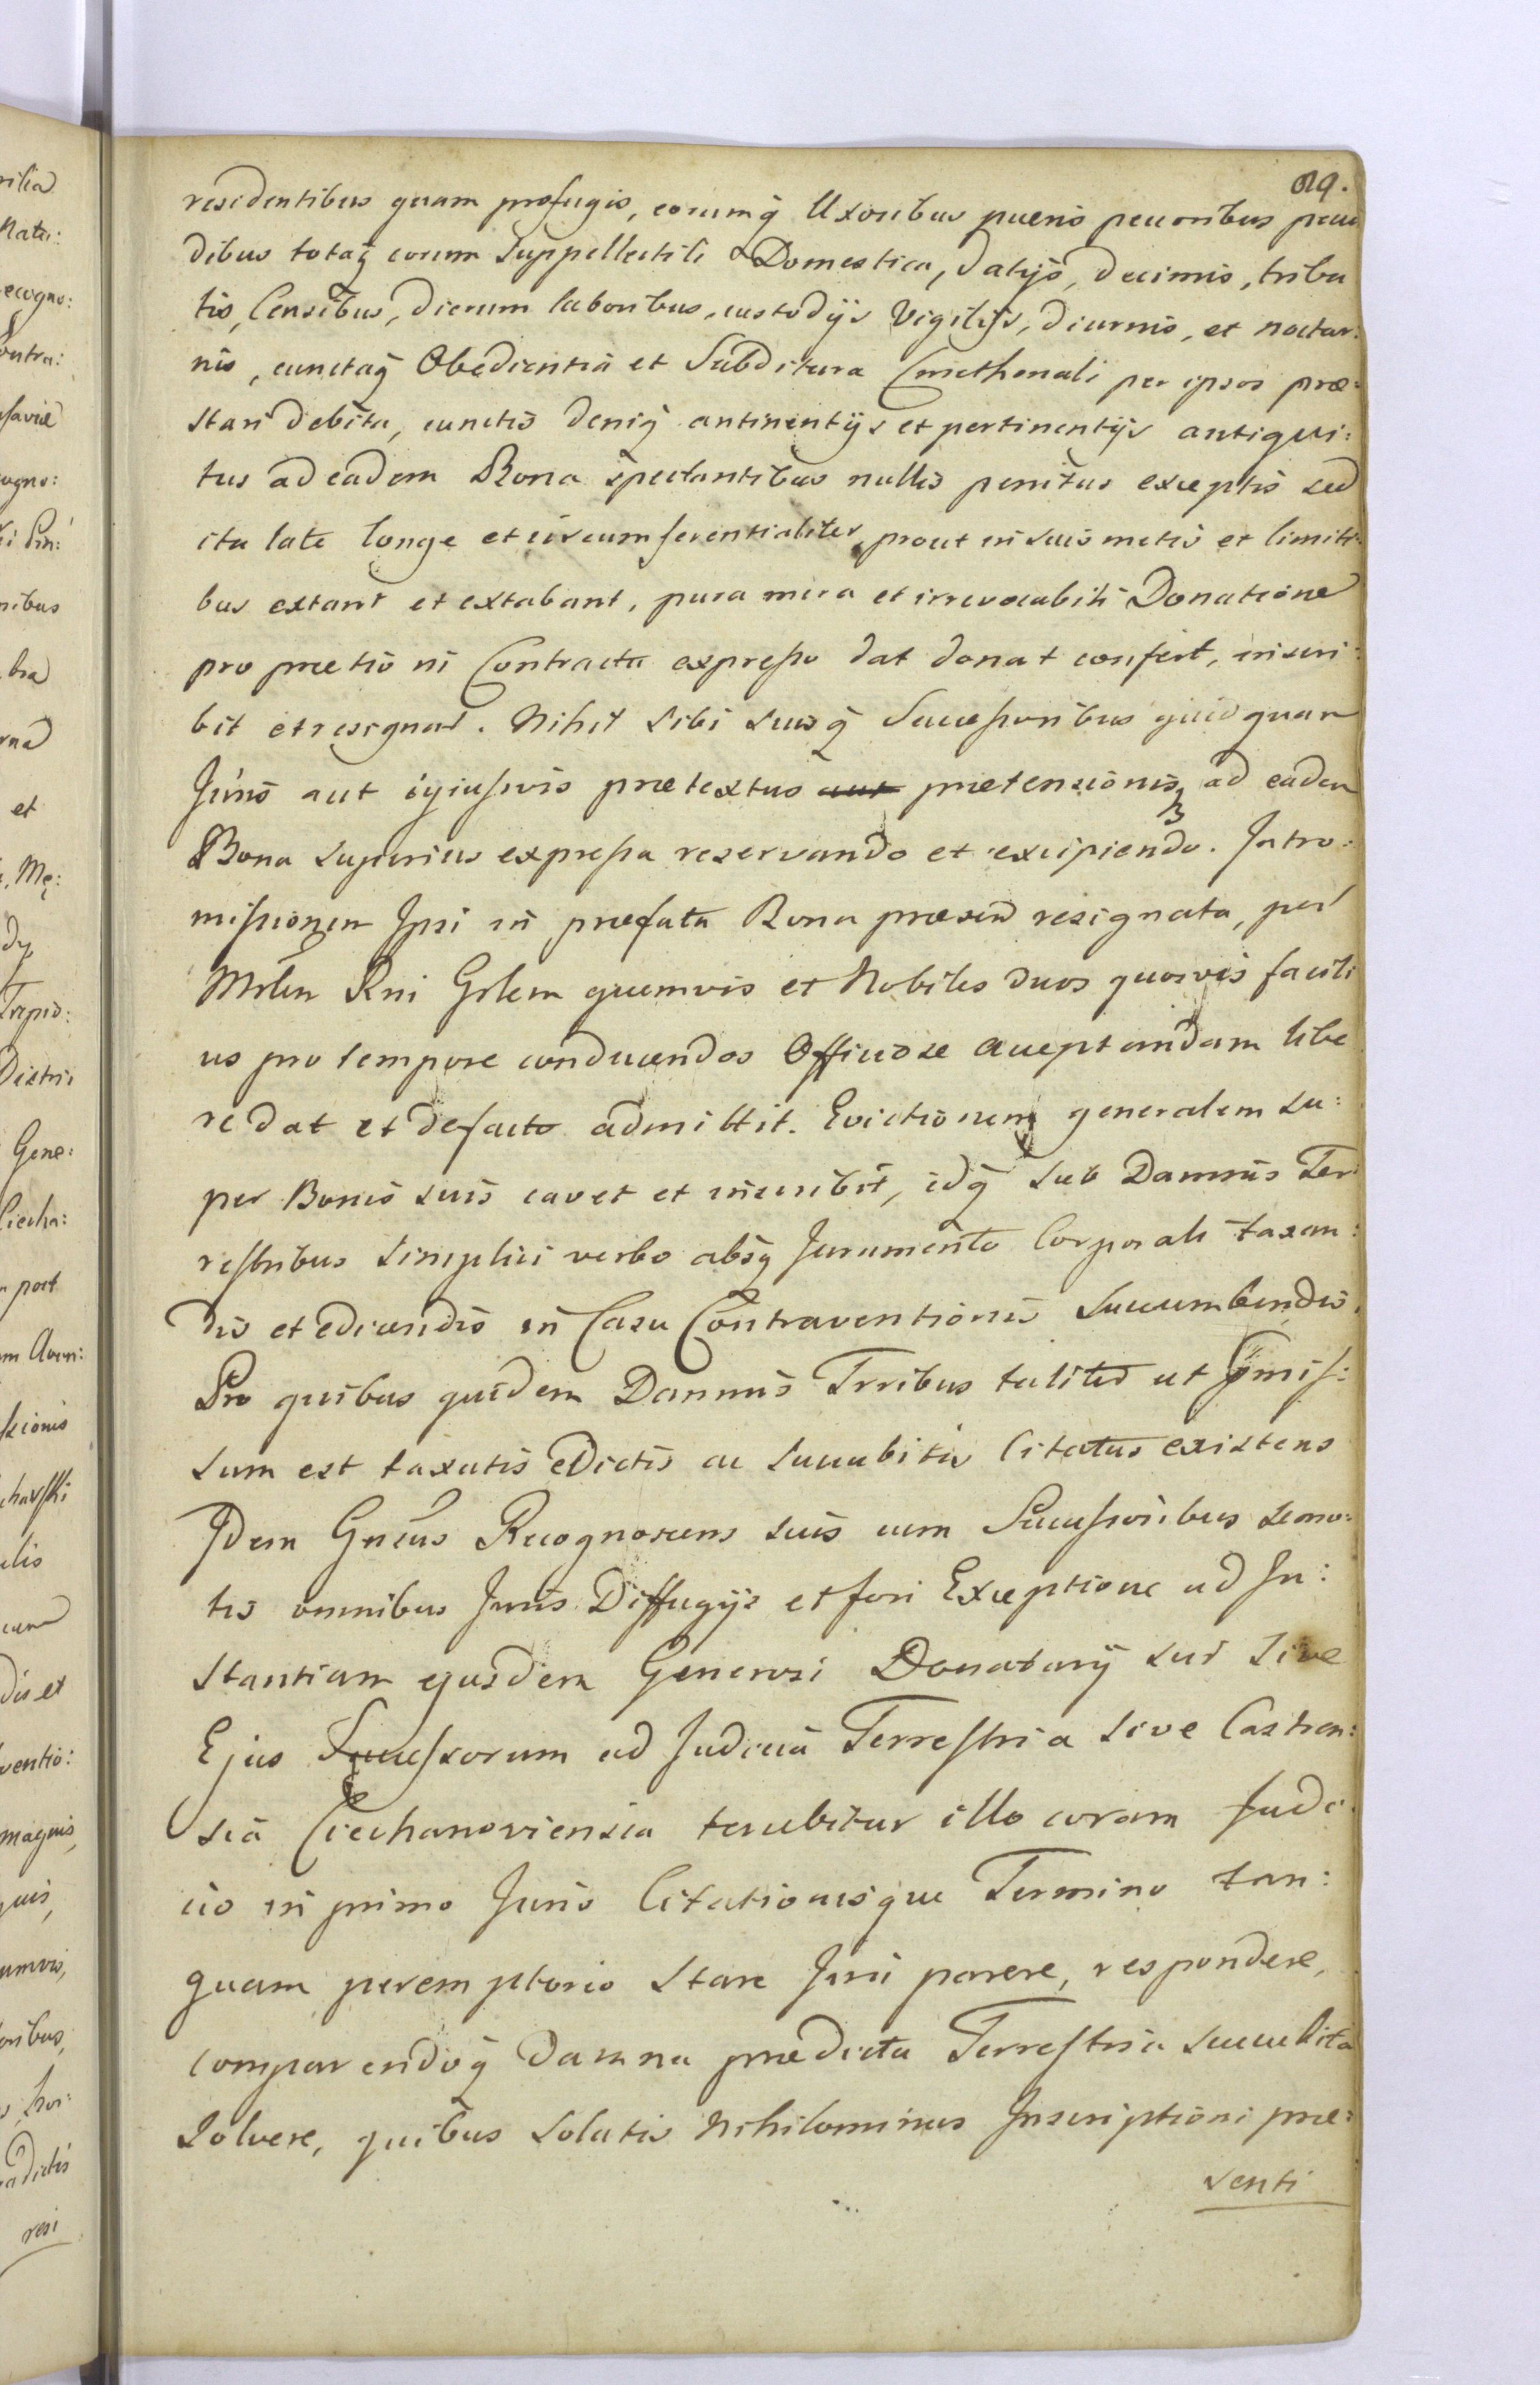 89.
residentibus quam profugis, eorumq̃ Uxoribus pueris pecoribus pecu
dibus totaq̃ eorum Suppellectili Domestica, datijs, decimis, tribu
tis, Censibus, dierum laboribus, custodijs Vigilijs, diurnis, et noctur:
nis, cunctaq̃ Obedientiâ et Subditura Cmethonali per ipsos præ:
stari debita, cunctis deniq̃ attinentijs et pertinentijs antiqui:
tus ad eadem Bona spectantibus nullis penitus exceptis sed
ita late longe et circumferentialiter prout in suis metis et limiti:
bus extant et extabant, pura mera et irrevocabili Donatione
pro prætio ni Contractu expresso dat donat confert, inscri:
bit et resignat. Nihil sibi suisq̃ Successoribus quidquam
Juris aut cujusvis prætextus aut prætensionisq̃ ad eadem
Bona superius expressa reservando et excipiendo. Intro:
missionem Ipsi in præfata Bona præsens resignata, per
Mrlem Rni Grlem quemvis et Nobiles duos quosvis facili
us pro tempore conducendos Officiose acceptandam libe
re dat et defacto admittit. Evictionem generalem su:
per Bonis suis cavet et inscribit, idq̃ sub Damnis Ter
restribus simplici verbo absq̃ Juramento Corporali taxan:
dis et edicendis in Casu Contraventionis Succumbendis.
Pro quibus quidem Damnis Trribus taliter ut p̃mis:
sum est taxatis edictis ac succubitis Citatus existens
Idem Gnẽus Recognoscens suis cum Successoribus semo:
tis omnibus Juris Diffugijs et fori Exceptione ad In:
stantiam ejusdem Generosi Donatarij sui sive
Ejus Successorum ad Judicia Terrestria sive Castren:
sia Ciechanoviensia tenebitur illo coram Judi
cio in primo Juris Citationisque Termino tan:
quam peremptorio stare Juri parere, respondere,
comparendoq̃ damna prædicta Terrestria succubita
Solvere, quibus solutis Nihilominus Inscriptioni præ:
senti